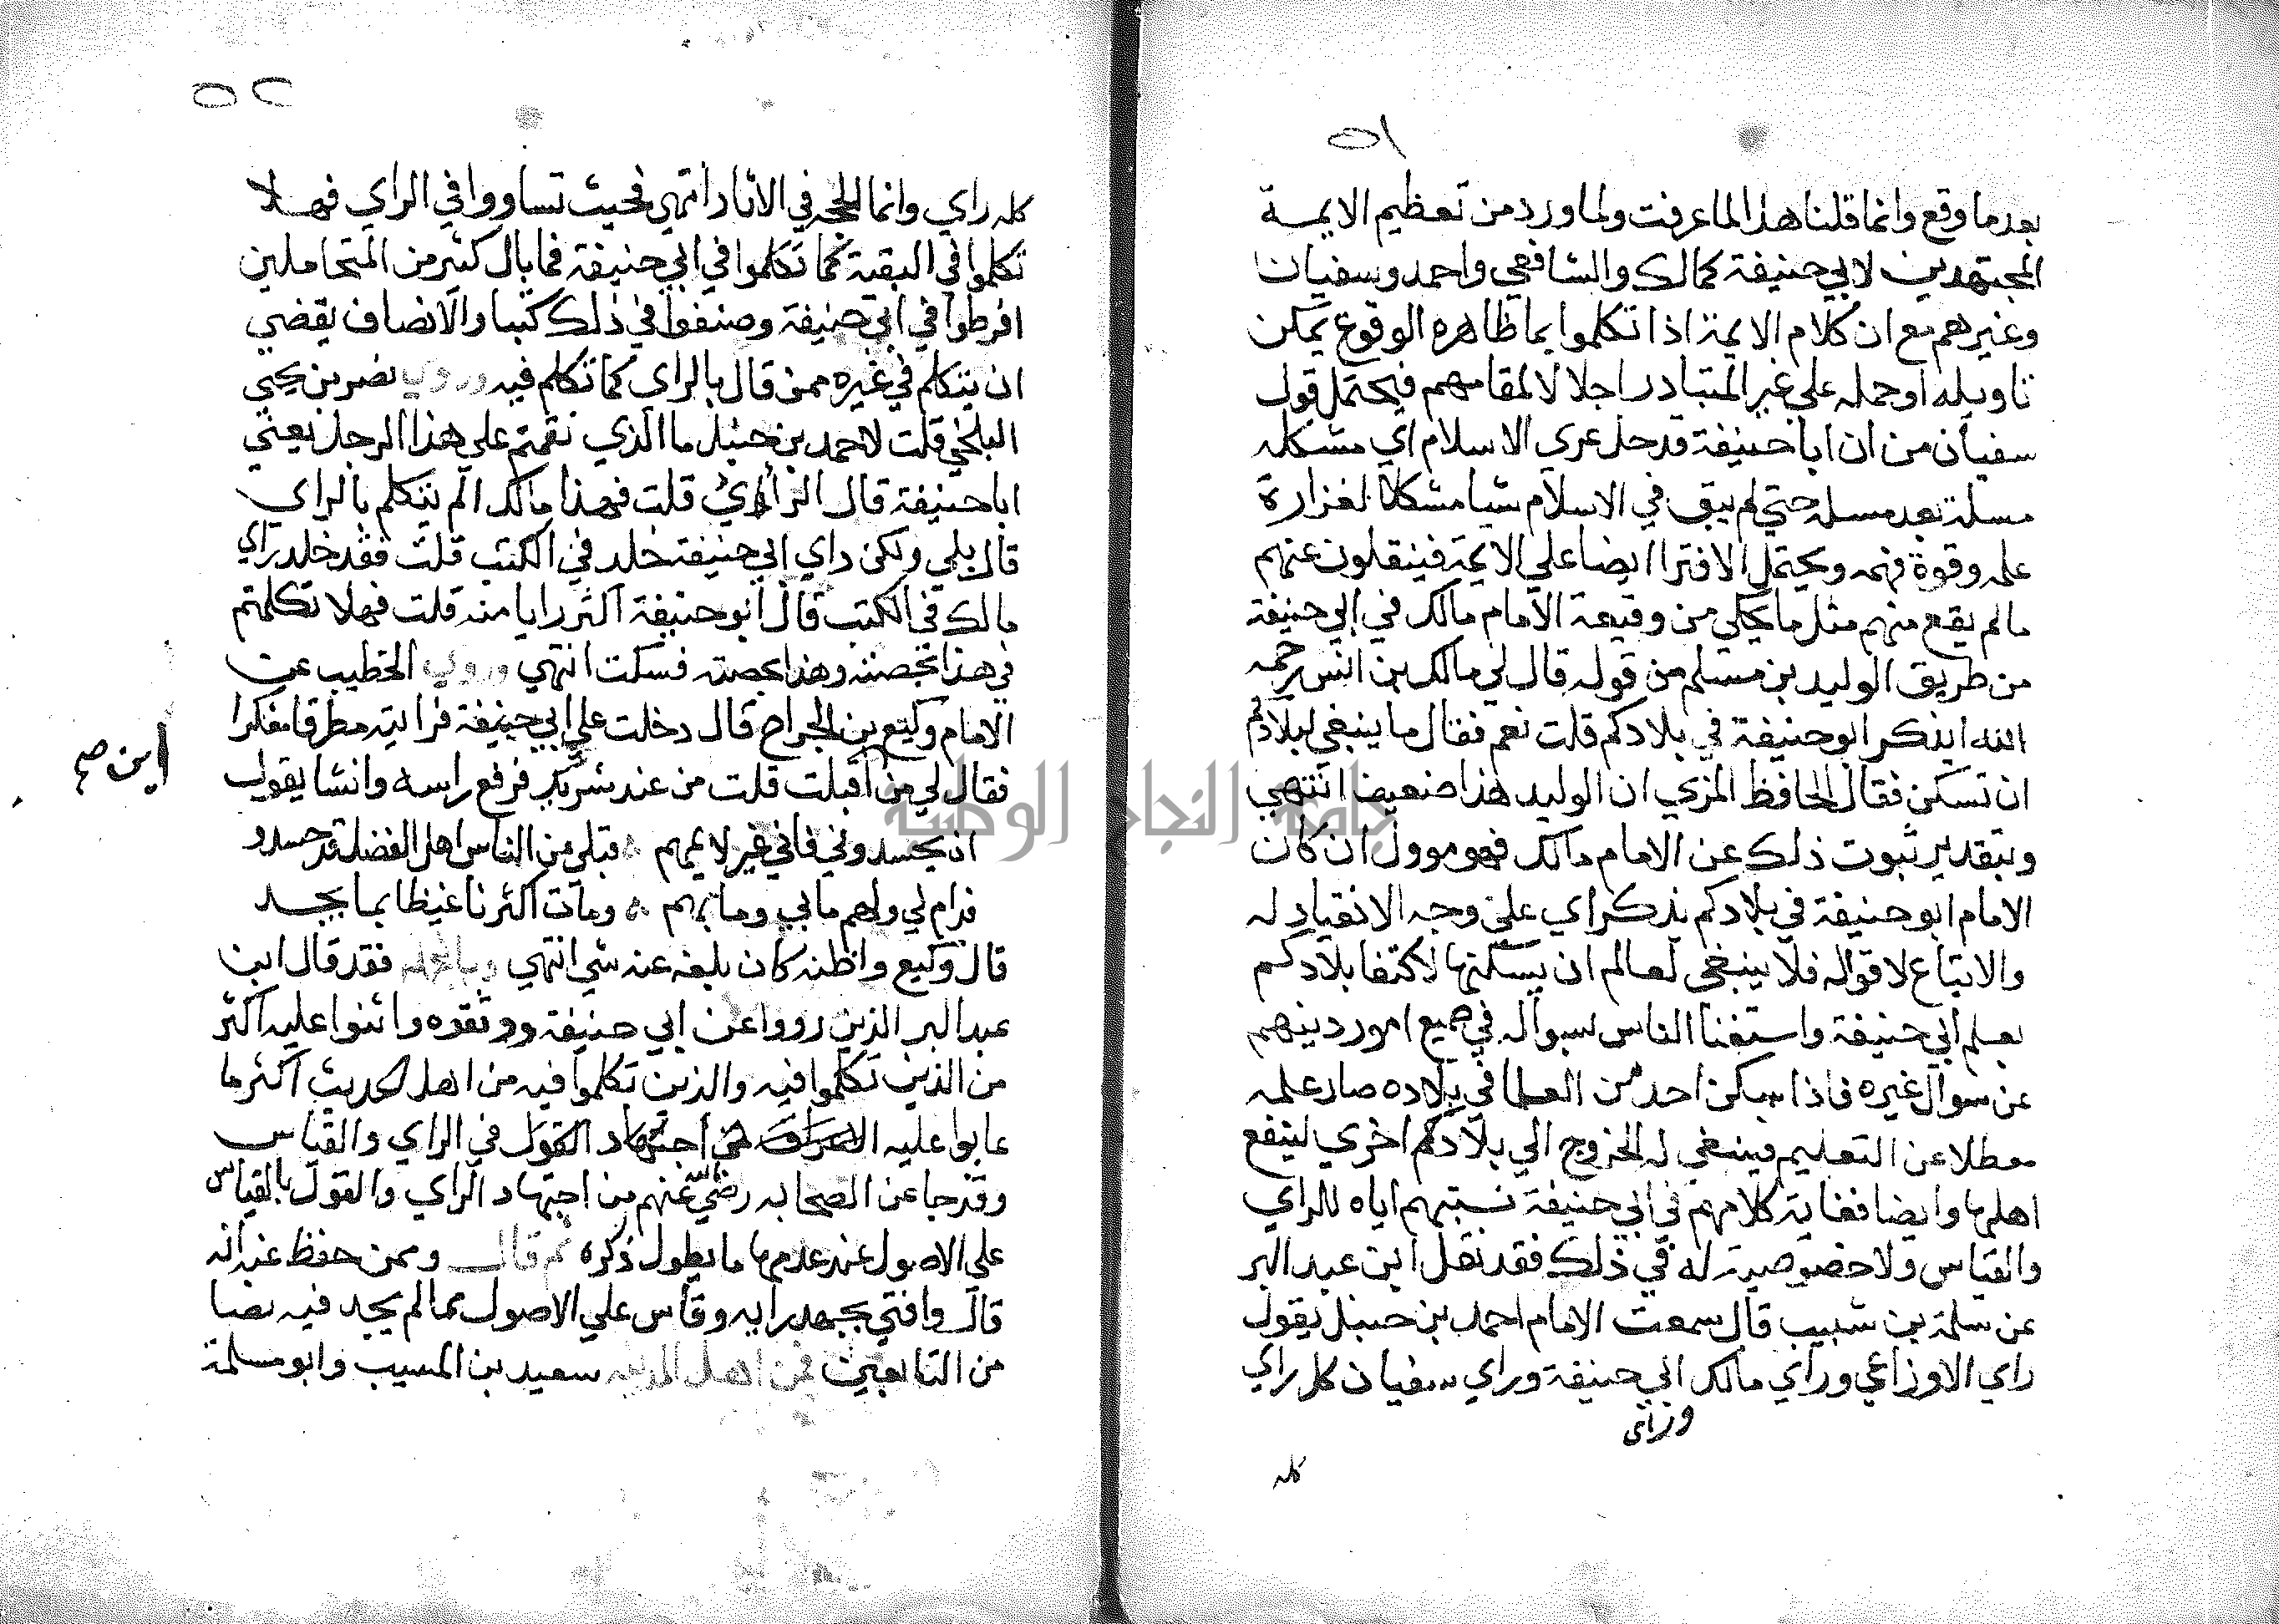 ٥١
بعد ما وقع وانما قلنا هذا لما عرفت ولما ورد من تعظيم الايمـة
المجتهدين لابي حنيفة كمالك والشافعي واحمد وسفيان
وغيرهم مع ان كلام الايمة اذا تكلموا بما ظاهره الوقوع يمكن
تاويله او حمله علي غير المتبادر اجلالا لمقامهم فيحتمل قول
سفيان من ان ابا حنيفة قد حل عري الاسلام اي مشكله
مسلة بعد مسلة حتي لم يبق في الاسلام شيا مشكلا لغزارة
علمه وقوة فهمه ويحتمل الافترا ايضا علي الايمة فينقلون عنهم
مالم يقع منهم مثل ما يحكي من وقيعة الامام مالك في ابي حنيفة
من طريق الوليد بن مسلم من قوله قال لي مالك بن انس رحمه
الله ايذكر ابو حنيفة في بلادكم قلت نعم فقال ما ينبغي لبلادكم
ان تسكن فقال الحافظ المزي ان الوليد هذا ضعيف انتهي
وبتقدير ثبوت ذلك عن الامام مالك فهو موول ان كان
الامام ابو حنيفة في بلادكم يذكر اي علي وجه الانقياد له
والاتباع لاقواله فلا ينبغي لعالم ان يسكنها لاكتفا بلادكم
بعلم ابي حنيفة واستغنا الناس بسواله في جميع امور دينهم
عن سوال غيره فاذا سكن احد من العلما في بلاده صار علمه
معطلا عن التعليم فينبغي له الخروج الي بلادكم اخري لينفع
اهلها وايضا فغاية كلامهم في ابي حنيفة نسبتهم اياه للراي
والقياس ولا خصوصية له في ذلك فقد نقل ابن عبد البر
عن سلمة بن شبيب قال سمعت الامام احمد بن حنبل يقول
راي الاوزاعي وراي مالك ابي حنيفة وراي سفيان كله راي
وراي
كله
٥٢
كله راي وانما الحجه في الاثار انتهي فحيث تساووا في الراي فهـلا
تكلموا في البقية كما تكلموا في ابي حنيفة فما بال كثير من المتحاملين
افرطوا في ابي حنيفة وصنفوا في ذلك كتبا والانصاف يقضي
ان يتكلم في غيره ممن قال بالراي كما تكلم فيه وروي نصر بن يحيي
البلخي قلت لاحمد بن حنبل ما الذي نقمتم علي هذا الرجل يعني
ابا حنيفة قال الراي قلت فهذا مالك الم يتكلم بالراي
قال بلي ولكن راي ابي حنيفة خلد في الكتب قلت فقد خلد راي
مالك في الكتب قال ابو حنيفة اكثر رايا منه قلت فهلا تكلمتم
في هذا بحصته وهذا بحصته فسكت انتهي وروي الخطيب عن
الامام وكيع بن الجراح قال دخلت علي ابي حنيفة فرايته مطرقا مفكرا
فقال لي من اقبلت قلت من عند شريك فرفع راسه وانشا يقول
اين صح
ان يحسدوني فاني غير لايمهم ٥ قبلي من الناس اهل الفضل قد حسدو
فدام لي ولهم ما بي وما بهم ٥ ومات اكثرنا غيظا بما يجـد
قال وكيع واظنه كان بلغه عنه شي انتهي وبالجمله فقد قال ابن
عبد البر الذين رووا عن ابي حنيفة ووثقوه واثنوا عليه اكثر
من الذين تكلموا فيه والذين تكلموا فيه من اهل الحديث اكثر ما
عابوا عليه الاغراق في اجتهاد القول في الراي والقياس
وقد جا عن الصحابه رضي عنهم من اجتهاد الراي والقول بالقياس
علي الاصول عند عدمها ما يطول ذكره ثم قال وممن حفظ عنه انه
قال وافتي بجهد رايه وقاس علي الاصول مما لم يجد فيه نصا
من التابعين فمن اهل المدينه سعيد بن المسيب وابو سلمة